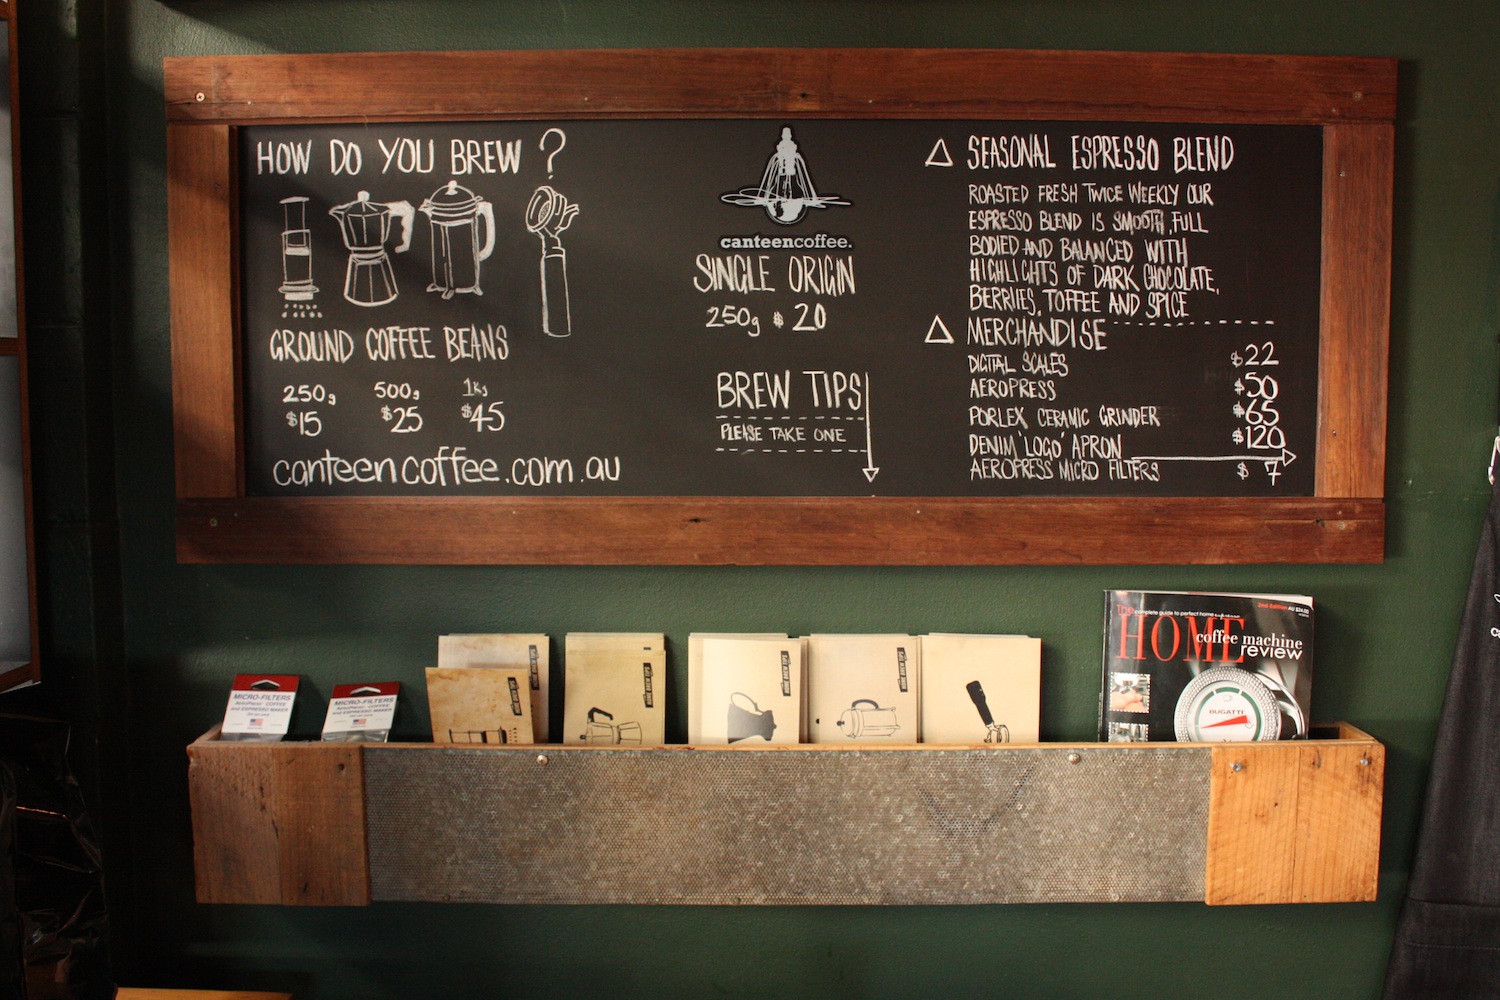 HOW DO YOU BREW ?
GROUND COFFEE BEANS
250g 500g 1kg
$15 $25 $45
canteencoffee.com.au
canteencoffee.
SINGLE ORIGIN
250g $ 20
BREW TIPS
PLEASE TAKE ONE
SEASONAL ESPRESSO BLEND
ROASTED FRESH TWICE WEEKLY OUR
ESPRESSO BLEND IS SMOOTH, FULL
BODIED AND BALANCED WITH
HIGHLIGHTS OF DARK CHOCOLATE,
BERRIES, TOFFEE AND SPICE
MERCHANDISE
DIGITAL SCALES $22
AEROPRESS $50
PORLEX CERAMIC GRINDER $65
DENIM 'LOGO' APRON $120
AEROPRESS MICRO FILTERS $ 7
MICRO-FILTERS
AEROPRESS COFFEE
and ESPRESSO MAKER
MICRO-FILTERS
AEROPRESS COFFEE
and ESPRESSO MAKER
The complete guide to perfect home
2nd Edition
HOME
coffee machine
review
BUGATTI